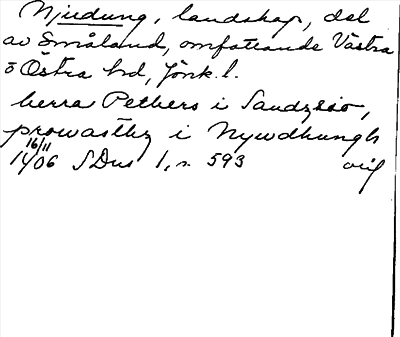 Njudung, landskap, del
av Småland, omfattande Västra
o Östra hd, Jönk. l.
herra Pethers i Sandzsio,
prowasthz i Nywdhungh
16/11
1406 SDns 1, s. 593 orig